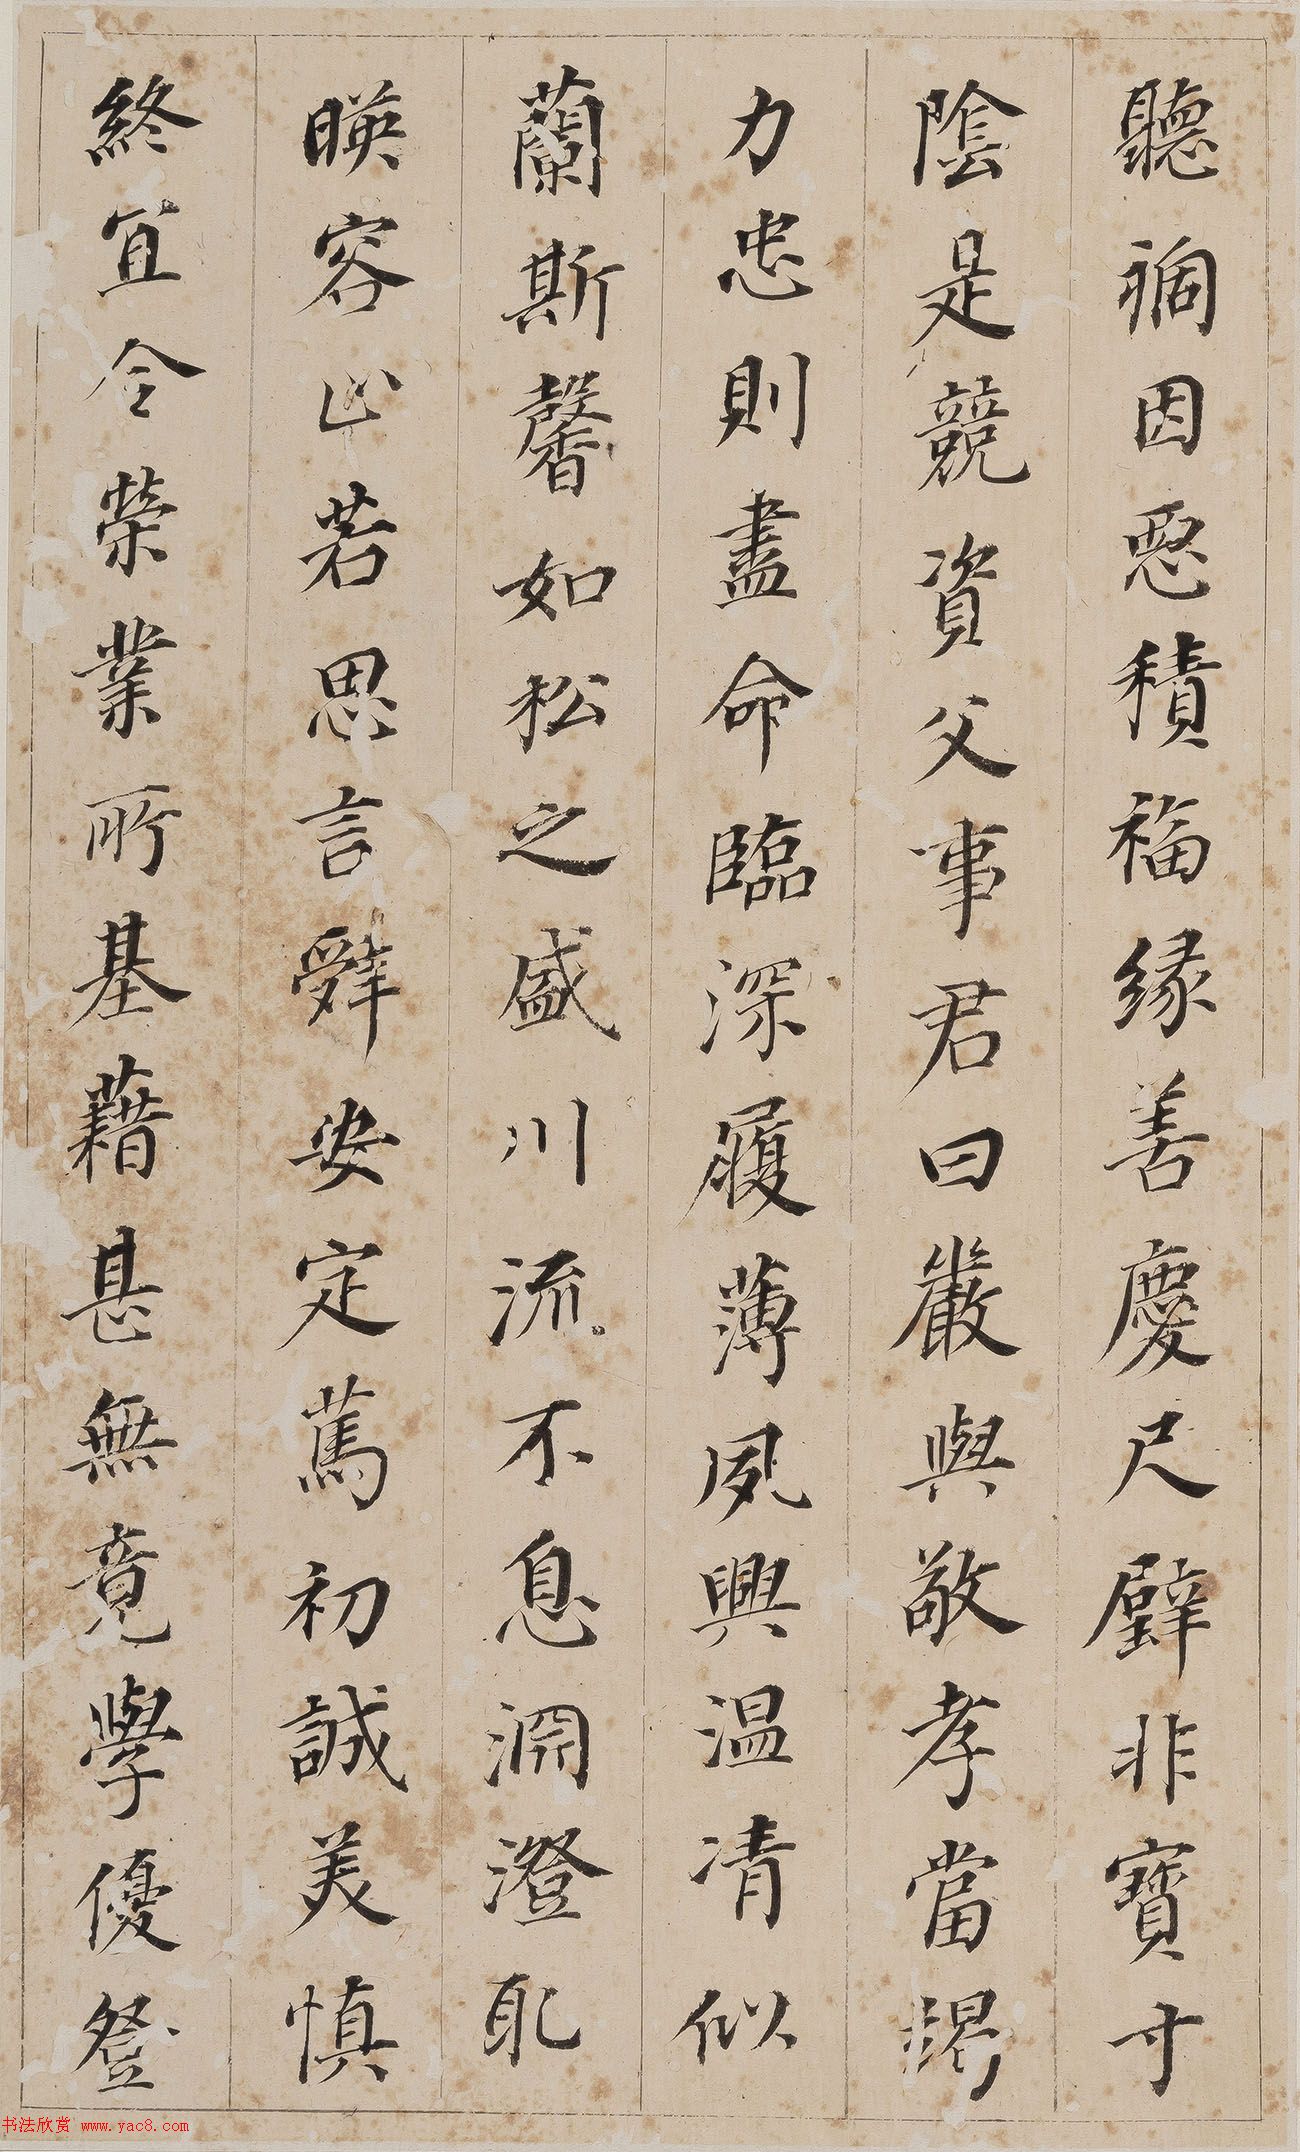 聽禍因惡積福緣善慶尺璧非寶寸
陰是競資父事君曰嚴與敬孝當竭
力忠則盡命臨深履薄夙興温凊似
蘭斯馨如松之盛川流不息淵澄取
暎容止若思言辭安定篤初誠美慎
終宜令榮業所基藉甚無竟學優登
书法欣赏 www.yac8.com